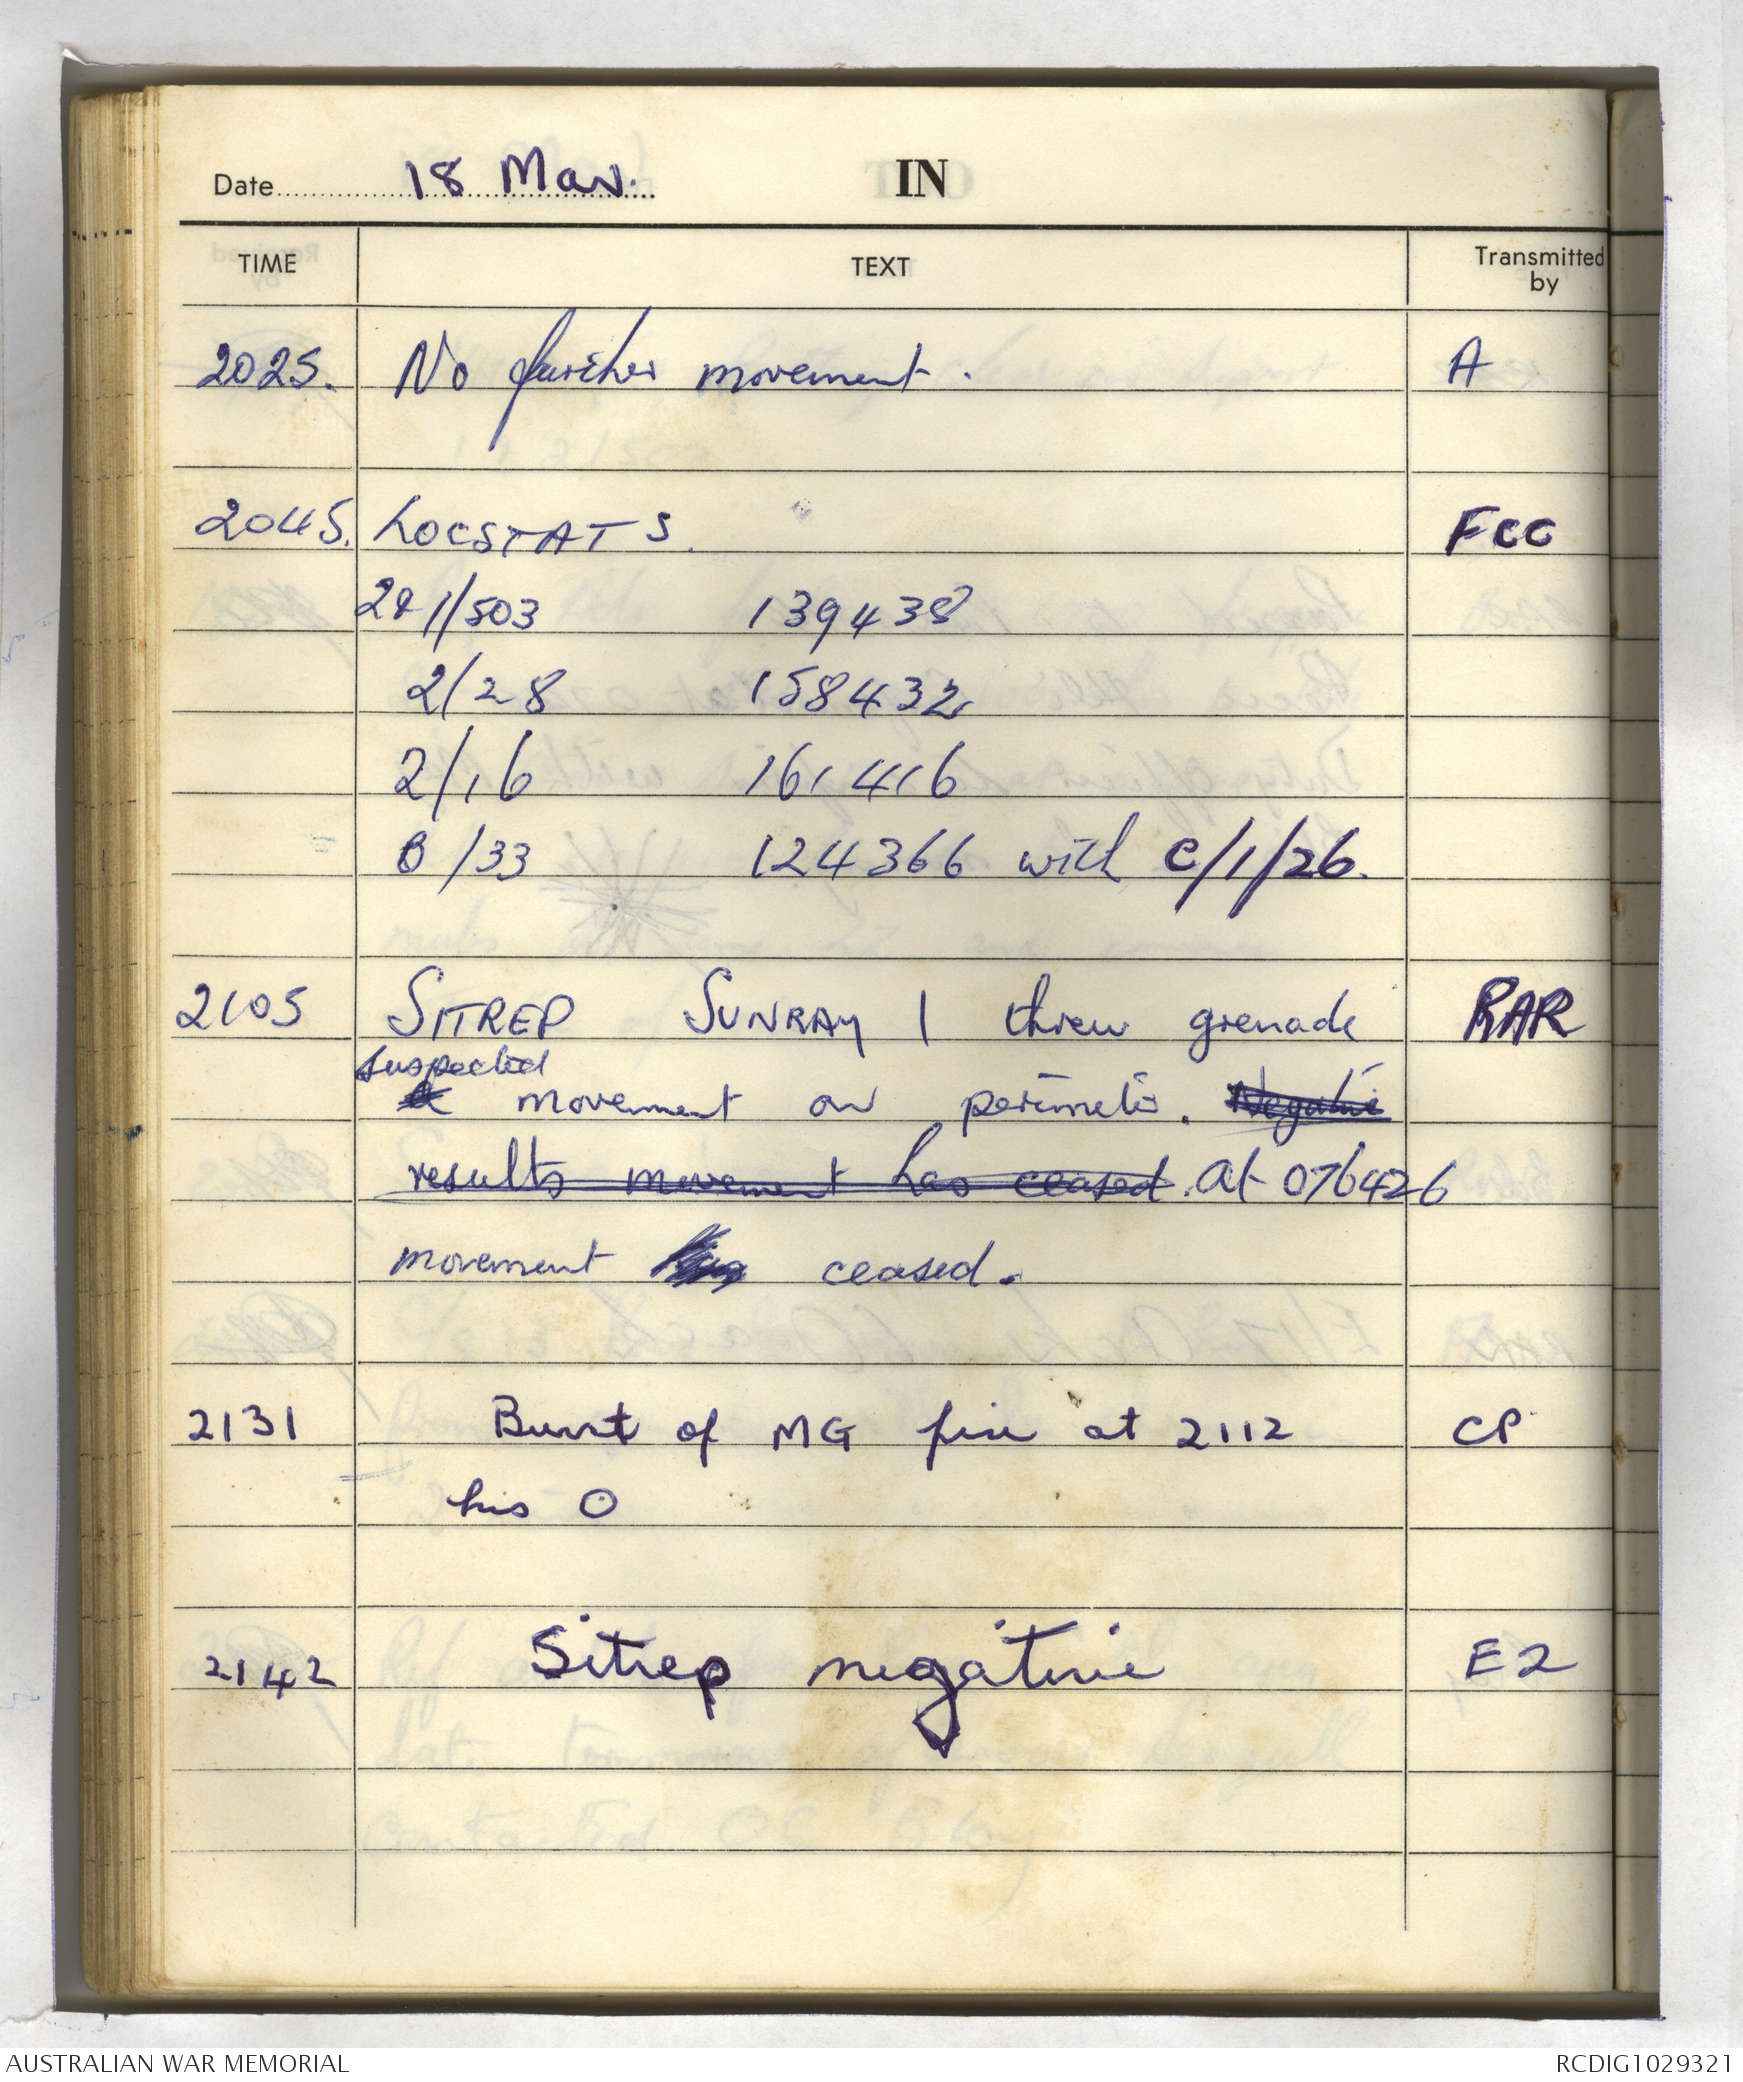 Date 18 Mar. IN
TIME TEXT Transmitted by
2025. No further movement. A
2045. LOCSTATS. FCC
2&1/503 139438
2/28 158432
2/16 161416
B/33 124366 with C/1/26.
2105 SITREP SUNRAY 1 threw grenade RAR
suspected
movement on perimeter. Negative
results movement has ceased. at 076426
movement has ceased.
2131 Burst of MG fire at 2112 CP
his O
2142 Sitrep negative E2
AUSTRALIAN WAR MEMORIAL RCDIG1029321